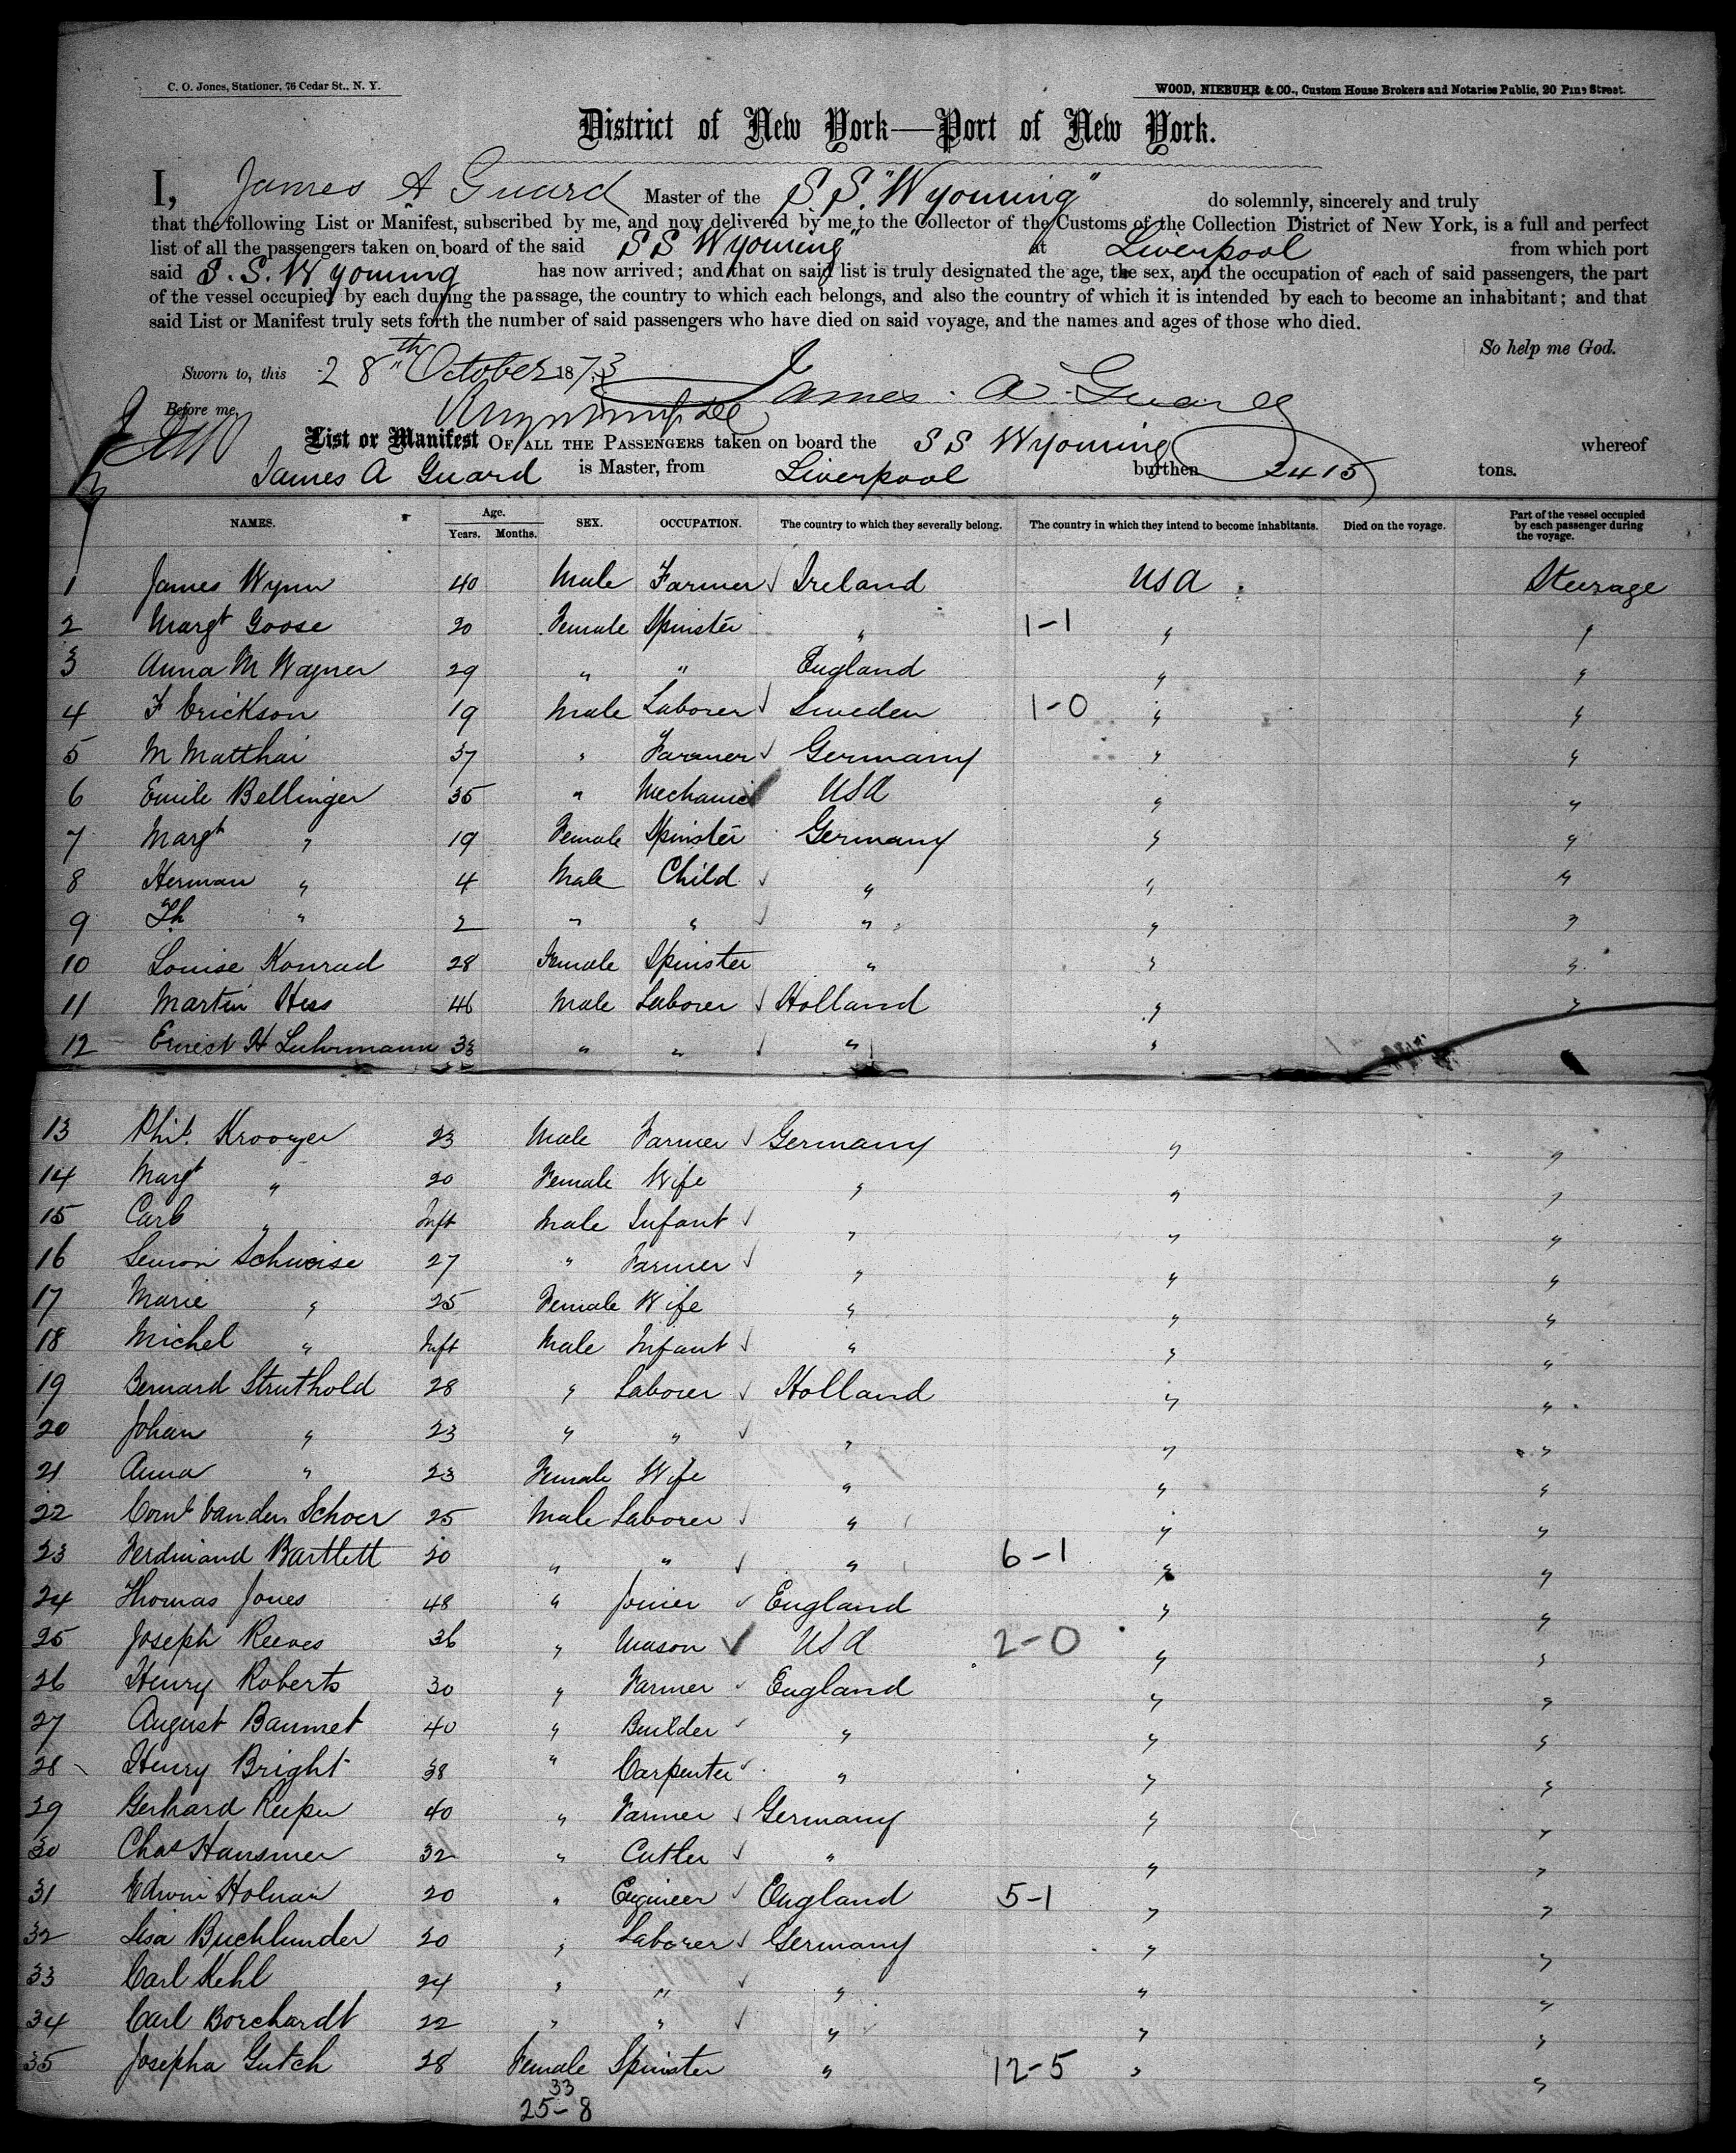 C. O. Jones, Stationer, 76 Cedar St., N. Y.
WOOD, NIEBUHR & CO., Custom House Brokers and Notaries Public, 20 Pine Street.
District of New York—Port of New York.
I, James A Guard Master of the S.S. "Wyoming" do solemnly, sincerely and truly
that the following List or Manifest, subscribed by me, and now delivered by me to the Collector of the Customs of the Collection District of New York, is a full and perfect
list of all the passengers taken on board of the said SS "Wyoming" at Liverpool from which port
said S.S. Wyoming has now arrived; and that on said list is truly designated the age, the sex, and the occupation of each of said passengers, the part
of the vessel occupied by each during the passage, the country to which each belongs, and also the country of which it is intended by each to become an inhabitant; and that
said List or Manifest truly sets forth the number of said passengers who have died on said voyage, and the names and ages of those who died.
So help me God.
Sworn to, this 28th October 1873 James A Guard
Before me,
List or Manifest OF ALL THE PASSENGERS taken on board the SS Wyoming whereof
James A Guard is Master, from Liverpool burthen 2415 tons.
NAMES. Age. Years. Months. SEX. OCCUPATION. The country to which they severally belong. The country in which they intend to become inhabitants. Died on the voyage. Part of the vessel occupied by each passenger during the voyage.
1 James Wynn 40 Male Farmer Ireland USA Steerage
2 Margt Goose 20 Female Spinster " 1-1 " "
3 Anna M Wagner 29 " " England " "
4 F Erickson 19 Male Laborer Sweden 1-0 " "
5 M Matthai 37 " Farmer Germany " "
6 Emile Bellinger 35 " Mechanic USA " "
7 Margt " 19 Female Spinster Germany " "
8 Herman " 4 Male Child " " "
9 Th " 2 " " " " "
10 Louise Konrad 28 Female Spinster " " "
11 Martin Hess 46 Male Laborer Holland " "
12 Ernest H Luhrmann 33 " " " "
13 Phil. Krooyer 23 Male Farmer Germany " "
14 Margt " 20 Female Wife " " "
15 Carl " Inft Male Infant " " "
16 Semon Schweise 27 " Farmer " " "
17 Marie " 25 Female Wife " " "
18 Michel " Inft Male Infant " " "
19 Bernard Struthold 28 " Laborer Holland " "
20 Johan " 23 " " " " "
21 Anna " 23 Female Wife " " "
22 Cornl Van den Schoer 25 Male Laborer " " "
23 Ferdinand Bartlett 20 " " " 6-1 " "
24 Thomas Jones 48 " Joiner England " "
25 Joseph Reeves 36 " Mason USA 2-0 " "
26 Henry Roberts 30 " Farmer England " "
27 August Baumet 40 " Builder " " "
28 Henry Bright 38 " Carpenter " " "
29 Gerhard Keiper 40 " Farmer Germany " "
30 Chas Hansmer 32 " Cutler " " "
31 Edwin Holman 20 " Engineer England 5-1 " "
32 Lisa Buchlunder 20 " Laborer Germany " "
33 Carl Kehl 24 " " " " "
34 Carl Borchardt 22 " " " " "
35 Josepha Gutch 28 Female Spinster " 12-5 " "
33
25-8